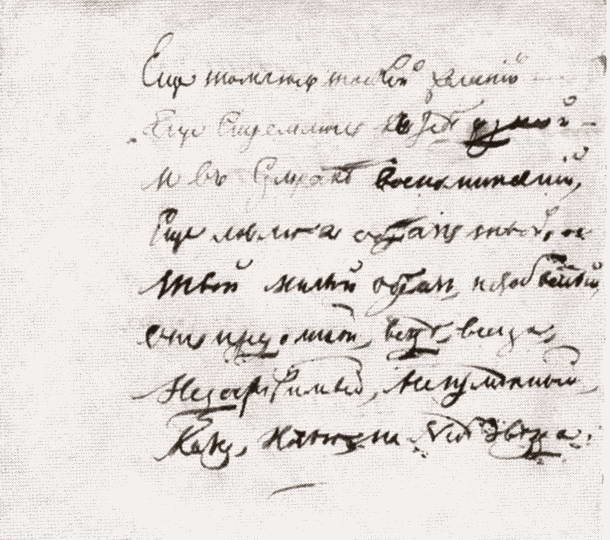 Еще томлюсь тоской желаній —
Еще стремлюсь къ тебѣ душой —
И въ сумракѣ воспоминаній,
Еще ловлю я образъ твой,
Твой милый образъ, незабвенный,
Онъ предо мной, вездѣ, всегда,
Недостижимый, неизмѣнный,
Какъ ночью на небѣ звѣзда.